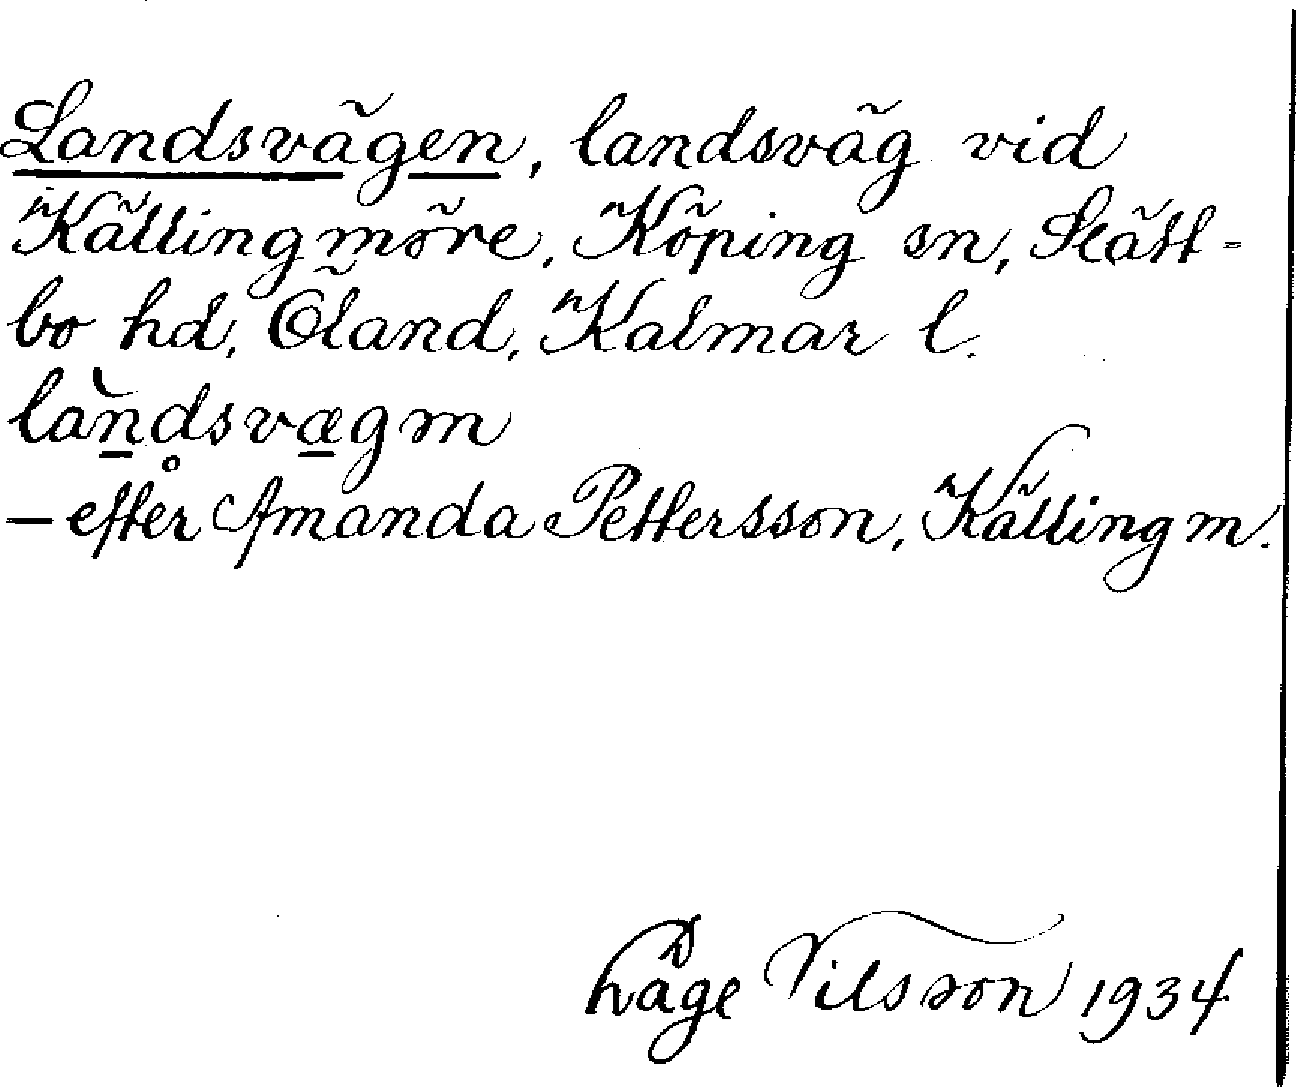 Landsvägen, landsväg vid
Källingmöre, Köping sn, Slätt-
bo hd, Öland, Kalmar l.
landsvægm
— efter Amanda Pettersson, Källingm.
Nilsson 1934